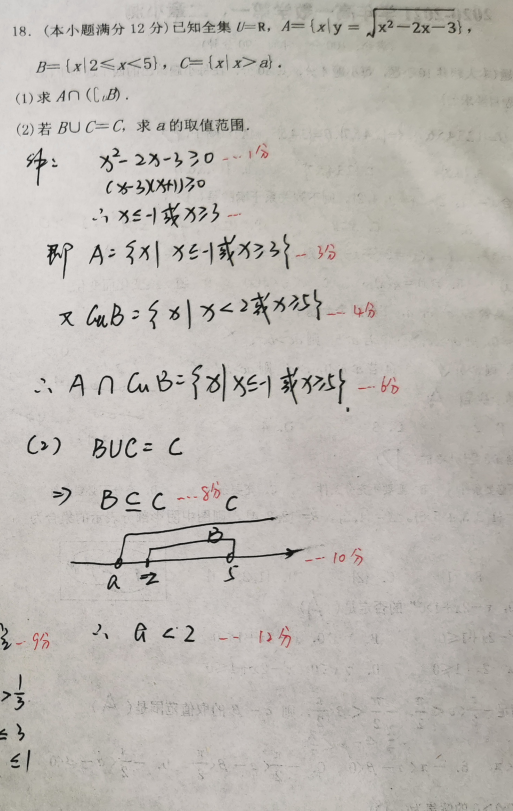 18. (本小题满分12分)已知全集U=R, A={x|y=√(x²-2x-3)},
B={x|2≤x<5}, C={x|x>a}.
(1)求A∩(∁ᵤB).
(2)若B∪C=C, 求a的取值范围.
解: x²-2x-3≥0 --- 1分
(x-3)(x+1)≥0
∴ x≤-1或x≥3 ---
即 A={x| x≤-1或x≥3} --- 3分
又 CuB={x|x<2或x≥5} --- 4分
∴ A∩CuB={x|x≤-1或x≥5}. --- 6分
(2) B∪C=C
⇒ B⊆C --- 8分
C
B
a 2 5 --- 10分
--- 9分 ∴ a<2 --- 12分
>1/3
≤3
≤1